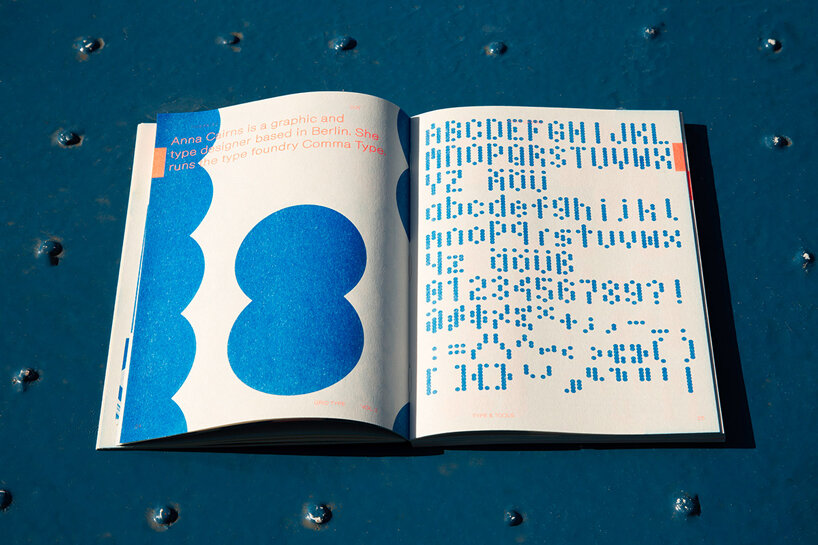 Anna Cairns is a graphic and
type designer based in Berlin. She
runs the type foundry Comma Type.
GRID TYPE
ABCDEFGHIJKL
MNOPQRSTUVWX
YZ ÄÖÜ
abcdefghijkl
mnopqrstuvwx
yz äöüß
0123456789?!
[ ]{}
TYPE & TOOLS